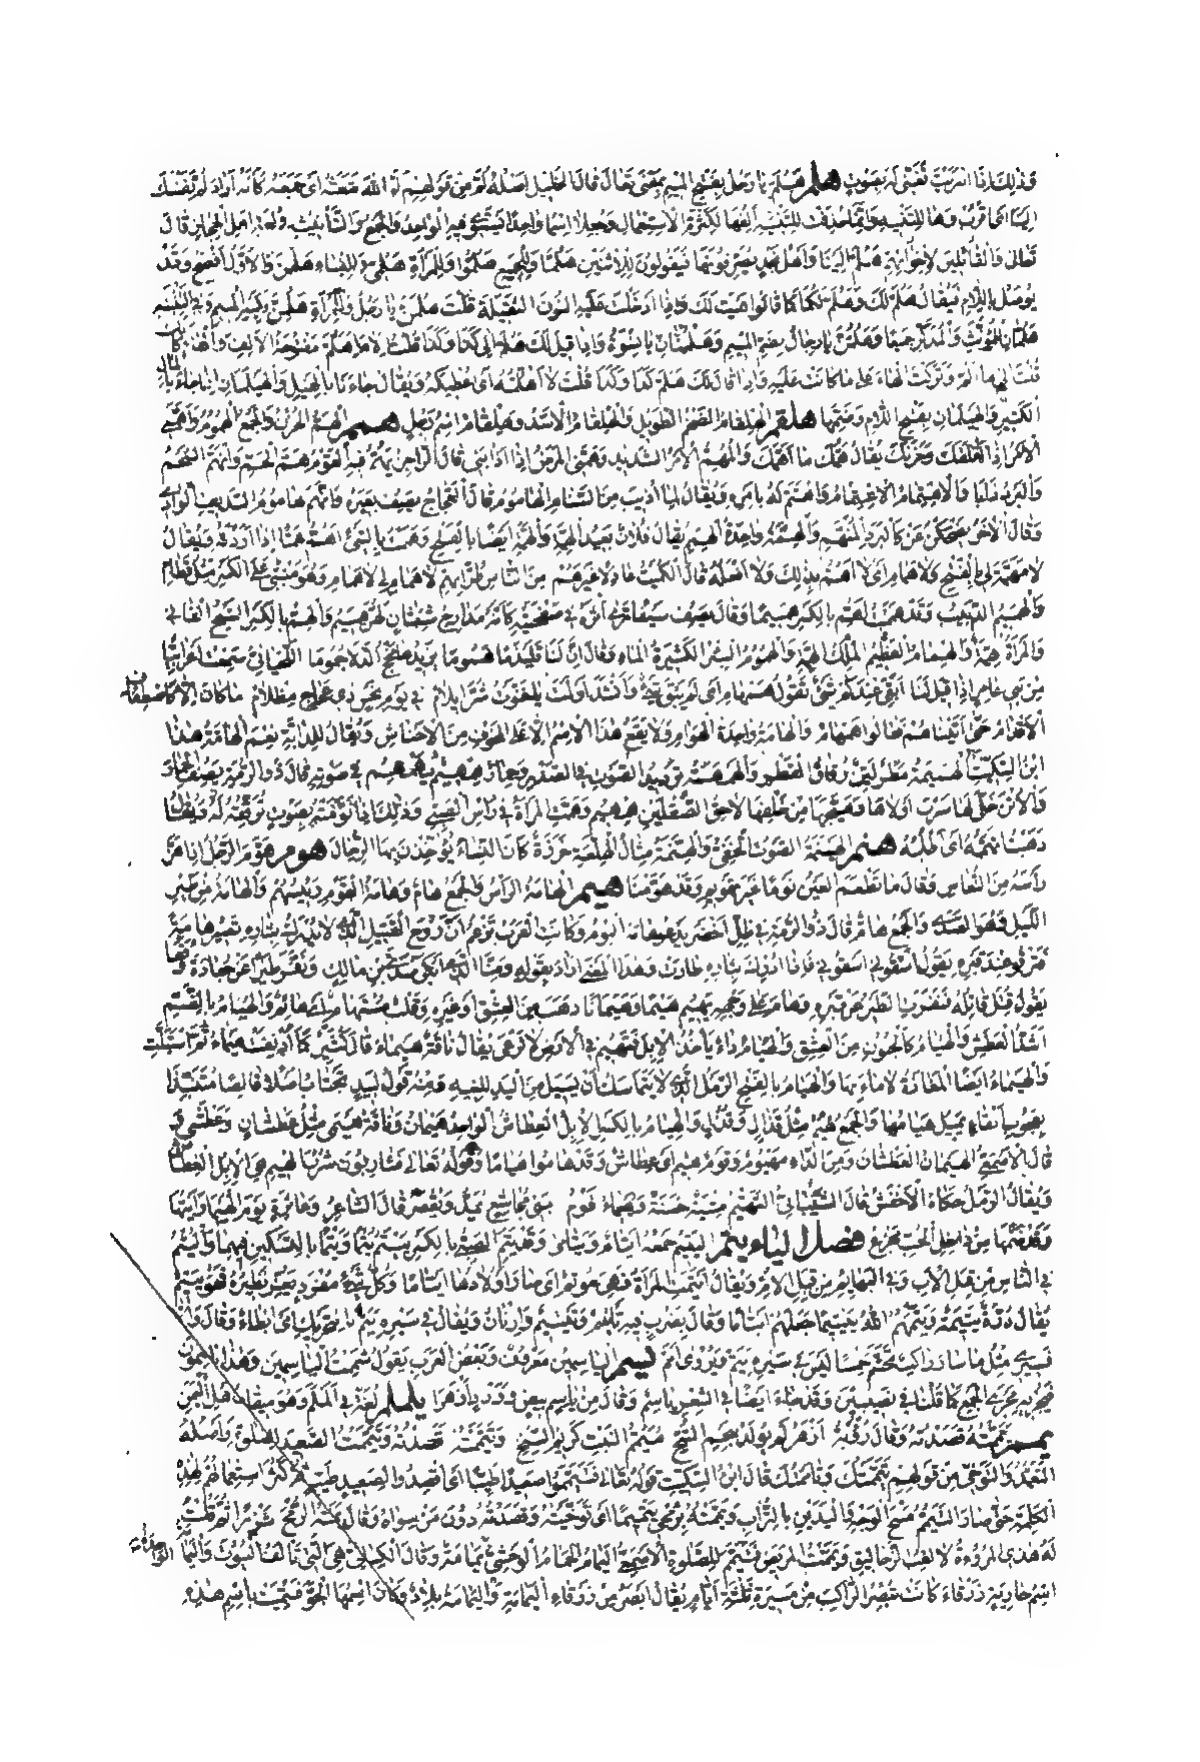 وذلك إذا اقتربت تغنى له بصوت هلم هلم يا رجل بفتح الميم بمعنى تعال قال الخليل أصله لم من قولهم لم الله شعثه أي جمعه كأنه أراد لم نفسك
إلينا أي اقرب وها للتنبيه وإنما حذفت ألفها لكثرة الاستعمال وجعلا اسما واحدا يستوي فيه الواحد والجمع والتأنيث في لغة أهل الحجاز قال
تعالى والقائلين لإخوانهم هلم إلينا وأهل نجد يصرفونها فيقولون للاثنين هلما وللجميع هلموا وللمرأة هلمي وللنساء هلممن والأول أفصح وقد
يوصل باللام فيقال هلم لك وهلم لكما كما قالوا هيت لك وإذا أدخلت عليه النون الثقيلة قلت هلمن يا رجل وللمرأة هلمن بكسر الميم وفي التثنية
هلمان للمؤنث والمذكر جميعا وهلمن يا رجال بضم الميم وهلممنان يا نسوة وإذا قيل لك هلم إلى كذا وكذا قلت إلام أهلم مفتوحة الألف والهاء كأنك
قلت إلام ألم وتركت الهاء على ما كانت عليه وإذا قال لك هلم كذا وكذا قلت لا أهلمه أي لا أعطيكه ويقال جاءنا بالهيل والهيلمان إذا جاء بالمال
الكثير والهيلمان بفتح اللام وضمها هلقم الهلقام الضخم الطويل والهلقام الأسد وهلقام اسم رجل همم الهم الحزن والجمع الهموم وأهمني
الأمر إذا أقلقك وحزنك يقال همك ما أهمك والمهم الأمر الشديد وهمني المرض إذا أذابني قال الراجز يهم فيه القوم هم الحم وانهم الشحم
والبرد ذابا والاهتمام الاغتمام واهتم له بأمره ويقال لما أذيب من السنام الهاموم قال العجاج يصف بعيره وانهم هاموم السديف الواري
وقال الآخر يضحكن عن كالبرد المنهم والهمة واحدة الهمم يقال فلان بعيد الهمة والهمة أيضا بالفتح وهممت بالشيء أهم هما إذا أردته ويقال
لا مهمة لي بالفتح ولا همام أي لا أهم بذلك ولا أفعله قال الكميت عادلا غيرهم من الناس طرا بهم لا همام لي لا همام وهو مبني على الكسر مثل قطام
والهميم الدبيب وقد هممت أهم بالكسر هميما وقال يصف سيفا ترى أثره في صفحتيه كأنه مدارج شبثان لهن هميم والهم بالكسر الشيخ الفاني
والمرأة همة والهمام الملك العظيم الهمة والهموم البئر الكثيرة الماء وقال إن لنا قليذما هموما يزيدها مخج الدلا جموما الكسائي سمعت أعرابيا
من بني عامر إذا قيل لنا أبقي عندكم شيء نقول همهام أي لم يبق شيء وأنشد أولمت يا خنوت شر إيلام في يوم نحس ذي عجاج مظلام ما كان إلا كاصطفاق
الأقدام حتى أتيناهم فقالوا همهام والهامة واحدة الهوام ولا يقع هذا الاسم إلا على المخوف من الأحناش ويقال للدابة نعم الهامة هذا
ابن السكيت الهميمة مطر لين دقاق القطر والهمهمة ترديد الصوت في الصدر وحمار همهيم يهمهم في صوته قال ذو الرمة يصف الحمار
والأتن خلى لها سرب أولاها وهيجها من خلفها لاحق الصقلين همهيم وهمت المرأة في رأس الصبي وذلك إذا نومته بصوت ترققه له ويقال
ذهبت أتهممه أي أطلبه هنم الهينمة الصوت الخفي والهنمة مثال الهلعة خرزة كان النساء يؤخذن بها الرجال هوم هوم الرجل إذا هز
رأسه من النعاس وقال ما تطعم العين نوما غير تهويم وقد هومنا هيم الهامة الرأس والجمع هام وهامة القوم رئيسهم والهامة من طير
الليل وهو الصدى والجمع هام قال ذو الرمة في ظل أخضر يدعو هامه البوم وكانت العرب تزعم أن روح القتيل الذي لا يدرك بثاره تصير هامة
فتزقو عند قبره تقول اسقوني اسقوني فإذا أدرك بثاره طارت وهذا المعنى أراد بقوله ومنا الذي أبكى صدي بن مالك ونفر طيرا عن جعادة وقعا
يقول قتل قاتله فنفرت الطير عن قبره وهام على وجهه يهيم هيما وهيمانا ذهب من العشق أو غيره وقلب مستهام أي هائم والهيام بالضم
أشد العطش والهيام كالجنون من العشق والهيام داء يأخذ الإبل فتهيم في الأرض لا ترعى يقال ناقة هيماء قال كثير
والهيماء أيضا المفازة لا ماء بها والهيام بالفتح الرمل الذي لا يتماسك أن يسيل من اليد للينه ومنه قول لبيد يجتاب أصلا قالصا متنبذا
بعجوب أنقاء يميل هيامها والجمع هيم مثل قذال وقذل والهيام بالكسر الإبل العطاش الواحد هيمان وناقة هيمى مثل عطشان وعطشى
قال الأصمعي الهيمان العطشان ومن الداء مهيوم وقوم هيم أي عطاش وقد هاموا هياما وقوله تعالى فشاربون شرب الهيم هي الإبل العطاش
ويقال الرمل حكاه الأخفش قال الشيباني التهيم مشية حسنة وهيماء قوم يمد ويقصر قال الشاعر وعاثرة يوم الهييما رأيتها
وقد ضمها من داخل الحب مجزع فصل الياء يتم اليتيم جمعه أيتام ويتامى وقد يتم الصبي بالكسر ييتم يتما ويتما بالتسكين فيهما واليتم
في الناس من قبل الأب وفي البهائم من قبل الأم ويقال أيتمت المرأة فهي موتم أي صار أولادها أيتاما وكل شيء مفرد يعز نظيره فهو يتيم
يقال درة يتيمة ويتمهم الله تيتيما جعلهم أيتاما وقال يضرب فيه ويقال في سيره يتم بالتحريك أي إبطاء وقال وإلا
فسيري مثل ما سار راكب تيمم خمسا ليس في سيره يتم ويروى أمم يسم الياسمين معروف وبعض العرب يقول شممت الياسمين وهذا ياسمون
فيجريه مجرى الجمع كما قلنا في نصيبين وقد جاء أيضا في الشعر ياسم وقال من ياسم بيض وورد أزهرا يلملم لغة في ألملم وهو ميقات أهل اليمن
يمم يممته قصدته وقال رؤبة أزهر لم يولد بنجم الشح ميمم البيت كريم السنخ وتيممته تقصدته وتيممت الصعيد للصلاة وأصله
التعمد والتوخي من قولهم تيممتك وتأممتك قال ابن السكيت قوله تعالى فتيمموا صعيدا طيبا أي اقصدوا لصعيد طيب ثم كثر استعمالهم لهذه
الكلمة حتى صار التيمم مسح الوجه واليدين بالتراب ويممته برمحي تيميما أي توخيته وقصدته دون من سواه وقال يممته الرمح شزرا ثم قلت
له هذي المروءة لا لعب الزحاليق ويممت المريض فتيمم للصلاة الأصمعي اليمام الحمام الوحشي الواحدة يمامة وقال الكسائي هي التي تألف البيوت واليمامة
اسم جارية زرقاء كانت تبصر الراكب من مسيرة ثلثة أيام يقال أبصر من زرقاء اليمامة واليمامة بلاد وكان اسمها الجو فسميت باسم هذه